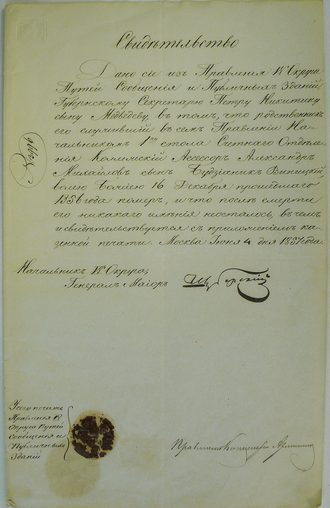 Свидѣтельство
Дано сіе изъ Правленія IV Округа
Путей Сообщенія и Публичныхъ Зданій
Губернскому Секретарю Петру Никитину
сыну Медвѣдеву, въ томъ, что родственникъ
его служившій въ семъ Правленіи На-
чальникомъ 1го стола Счетнаго Отдѣле-
нія Коллежскій Ассесоръ Александръ
Михайловъ сынъ
волею Божіею 16 Декабря прошлаго
1856 года померъ, и что послѣ смерти
его никакого имѣнія неосталось, въ чемъ
и свидѣтельствуется съ приложеніемъ ка-
зенной печати. Москва Іюня 4 дня 1857 года.
Начальникъ IV Округа,
Генералъ Маіоръ
У сего печать
Правленія IV
Округа Путей
Сообщенія и
Публичныхъ
Зданій